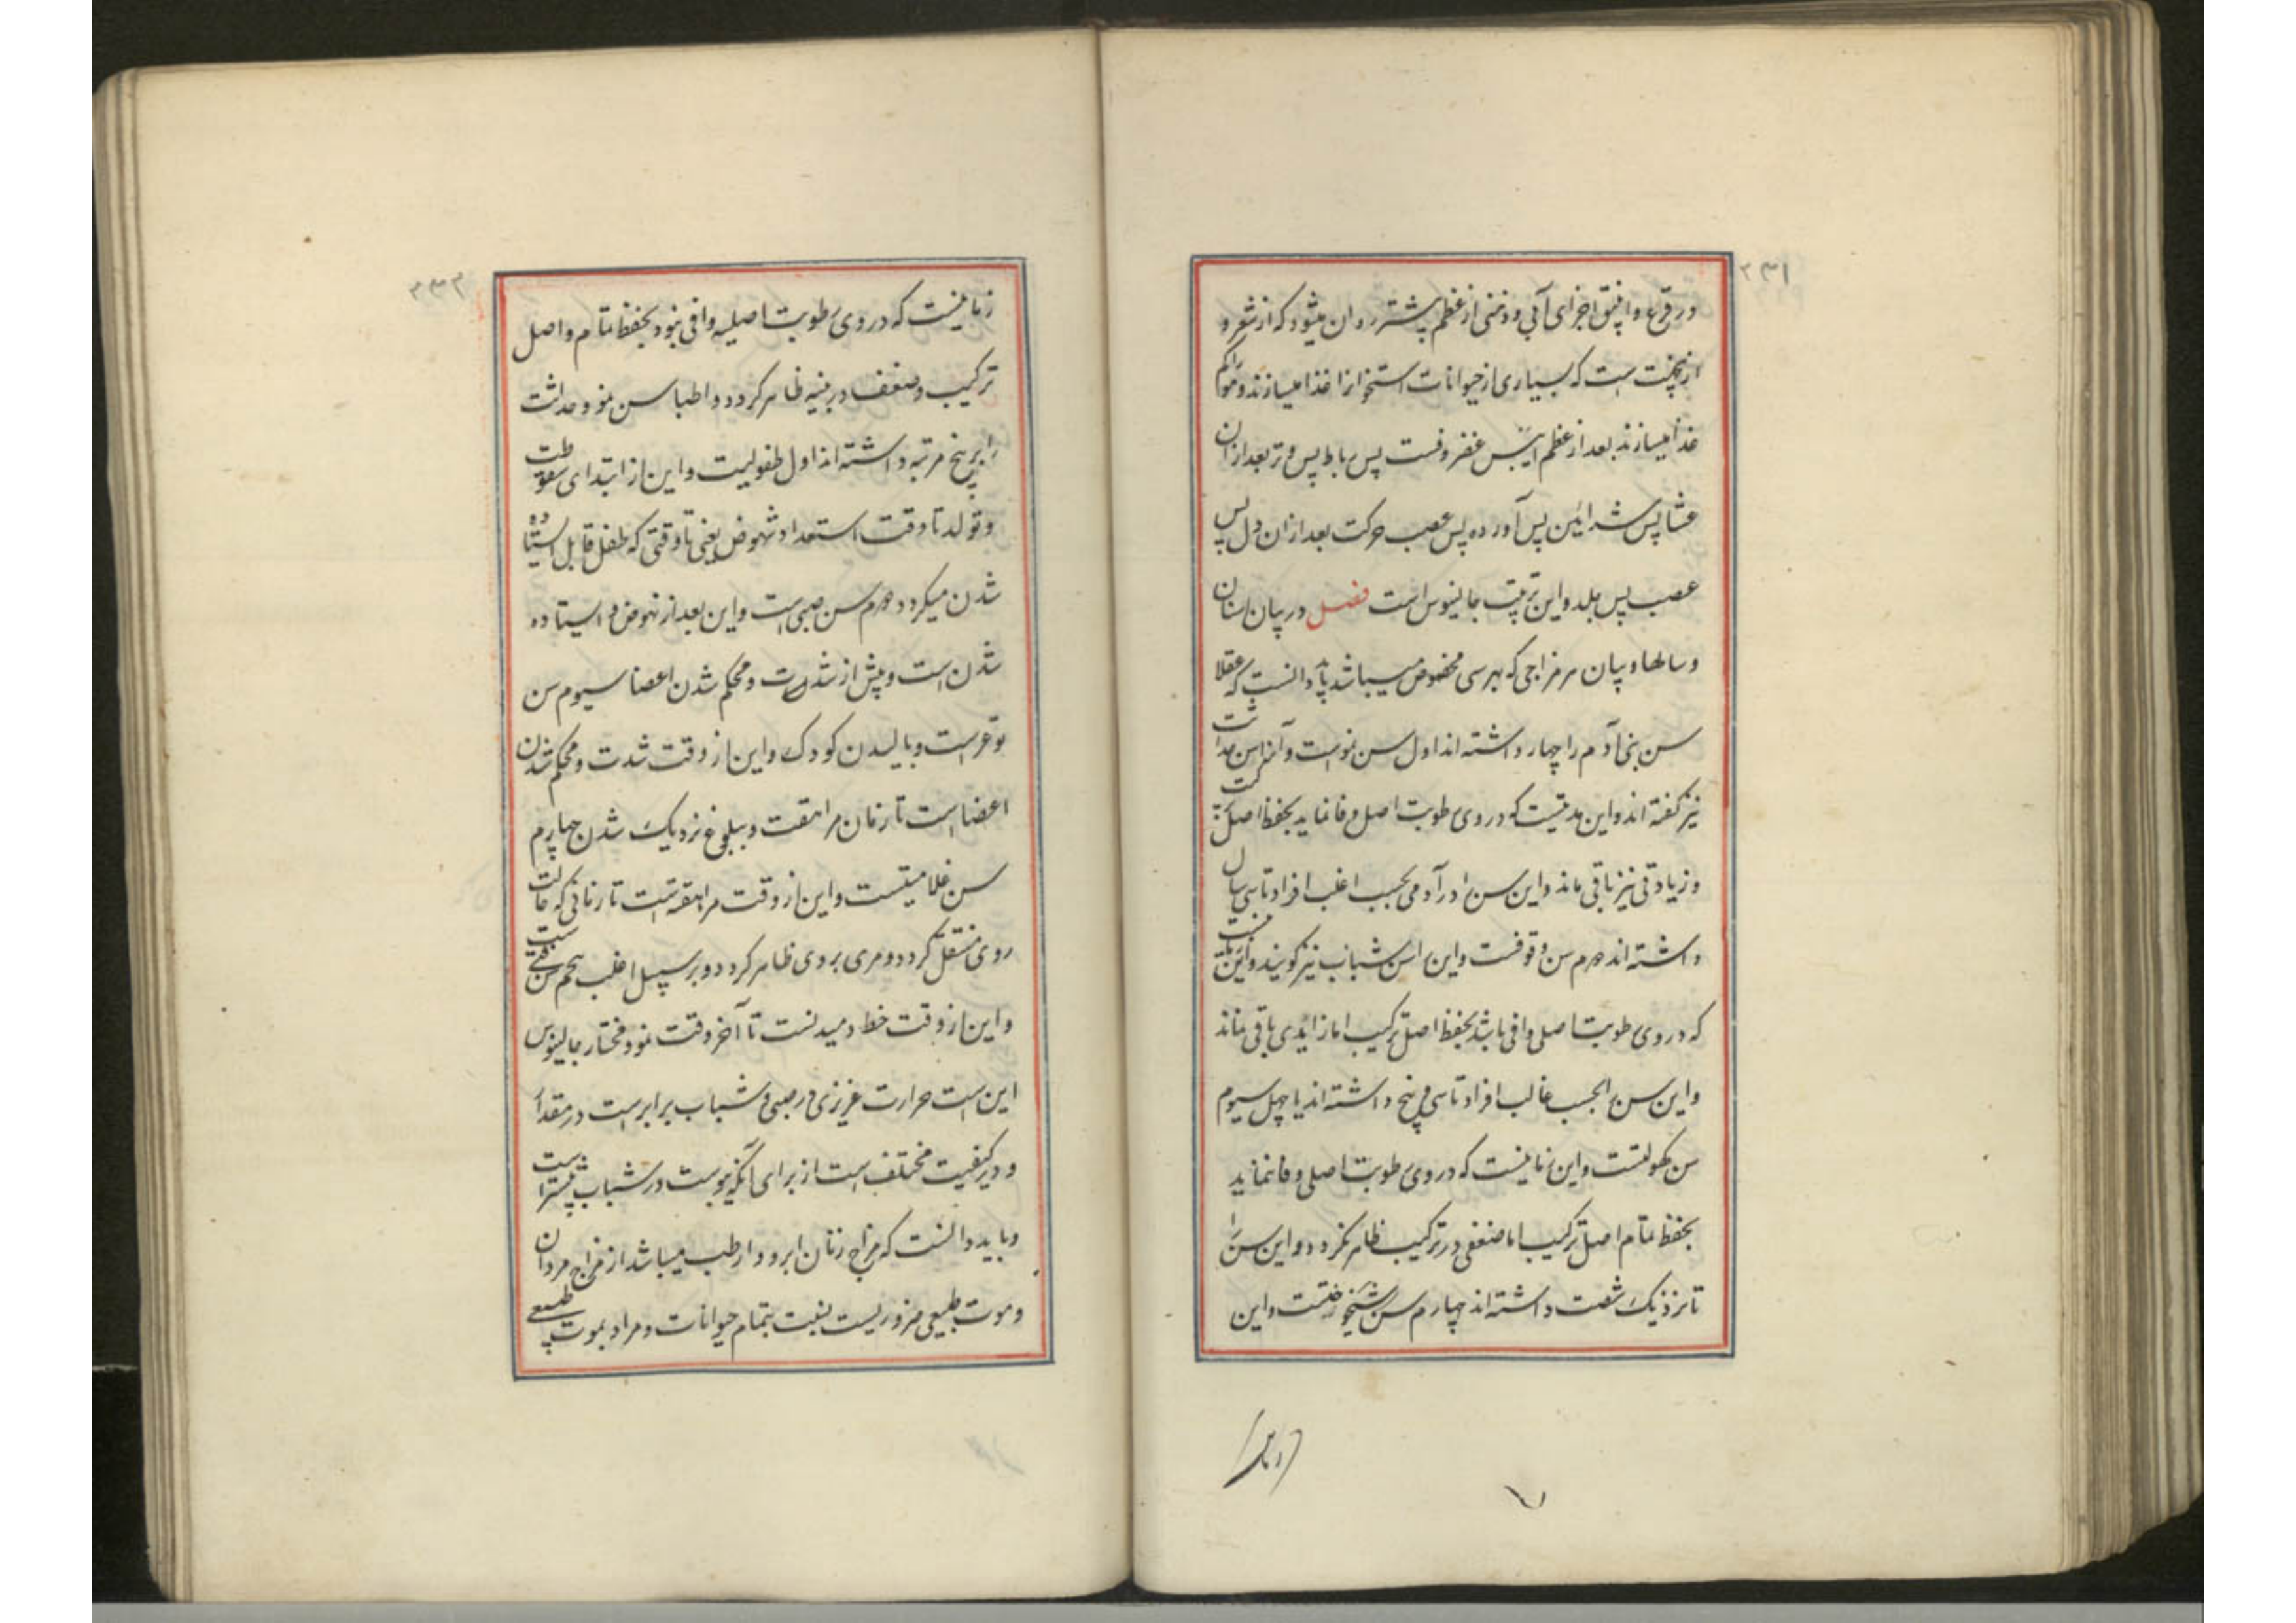 ۲۳۱
در قرع و انبیق اجزای آبی و دهنی از عظم بیشتر روان میشود که از شعر و
ازینجهت است که بسیاری از حیوانات استخوانرا غذا میسازند و مو را کم
غذا میسازند بعد از عظم ایبس غضروفست پس رباط پس وتر بعد از ان
غشا پس شرائین پس آورده پس عصب حرکت بعد از ان دل پس
عصب پس جلد و این ترتیب جالینوس است فصل در بیان اسنان
و سالها و بیان هر مزاجی که بهر سی مخصوص میباشد باید دانست که عقلا
سن بنی آدم را چهار داشته اند اول سن نمو است و آنرا سن حداثت
نیز گفته اند و این مدتیست که در وی رطوبت اصل وفا نماید بحفظ اصل
و زیادتی نیز باقی ماند و این سن را در آدمی بحسب اغلب افراد تا سی سال
داشته اند دوم سن وقوفست و این را سن شباب نیز گویند و این
که در وی رطوبت اصلی وافی باشد بحفظ اصل ترکیب اما زایدی باقی نماند
و این سن را بحسب غالب افراد تا سی و پنج داشته اند یا چهل سیوم
سن کهولتست و این زمانیست که در وی رطوبت اصلی وفا نماید
بحفظ تمام اصل ترکیب اما ضعفی در ترکیب ظاهر نگردد و این سن را
تا نزدیک شصت داشته اند چهارم سن شیخوختست و این
زمانیست
۲۳۲
زمانیست که در وی رطوبت اصلیه وافی نبود بحفظ تمام و اصل
ترکیب و ضعف در بنیه ظاهر گردد و اطبا سن نمو و حداثت
را بر پنج مرتبه داشته اند اول طفولیت و این از ابتدای سقوطت
و تولد تا وقت استعداد نهوض یعنی تا وقتی که طفل قابل استاده
شدن میگردد دوم سن صبی است و این بعد از نهوض و ایستاده
شدن است و پیش از شدت و محکم شدن اعضا سیوم سن
ترعرعست و بالیدن کودک و این از وقت شدت و محکم شدن
اعضا است تا زمان مراهقت و ببلوغ نزدیک شدن چهارم
سن غلامیتست و این از وقت مراهقه است تا زمانی که حالت
روی منتقل گردد و مری بروی ظاهر گردد و بر سبیل اغلب پنجم سن فتی است
و این از وقت خط دمیدنست تا آخر وقت نمو و مختار جالینوس
این است حرارت غریزی در صبی و شباب برابرست در مقدار
و در کیفیت مختلف است از برای آنکه یبوست در شباب بیشتر است
و باید دانست که مزاج زنان ابرد و ارطب میباشد از مزاج مردان
و موت طبیعی ضروریست بنسبت بتمام حیوانات و مراد بموت طبیعی